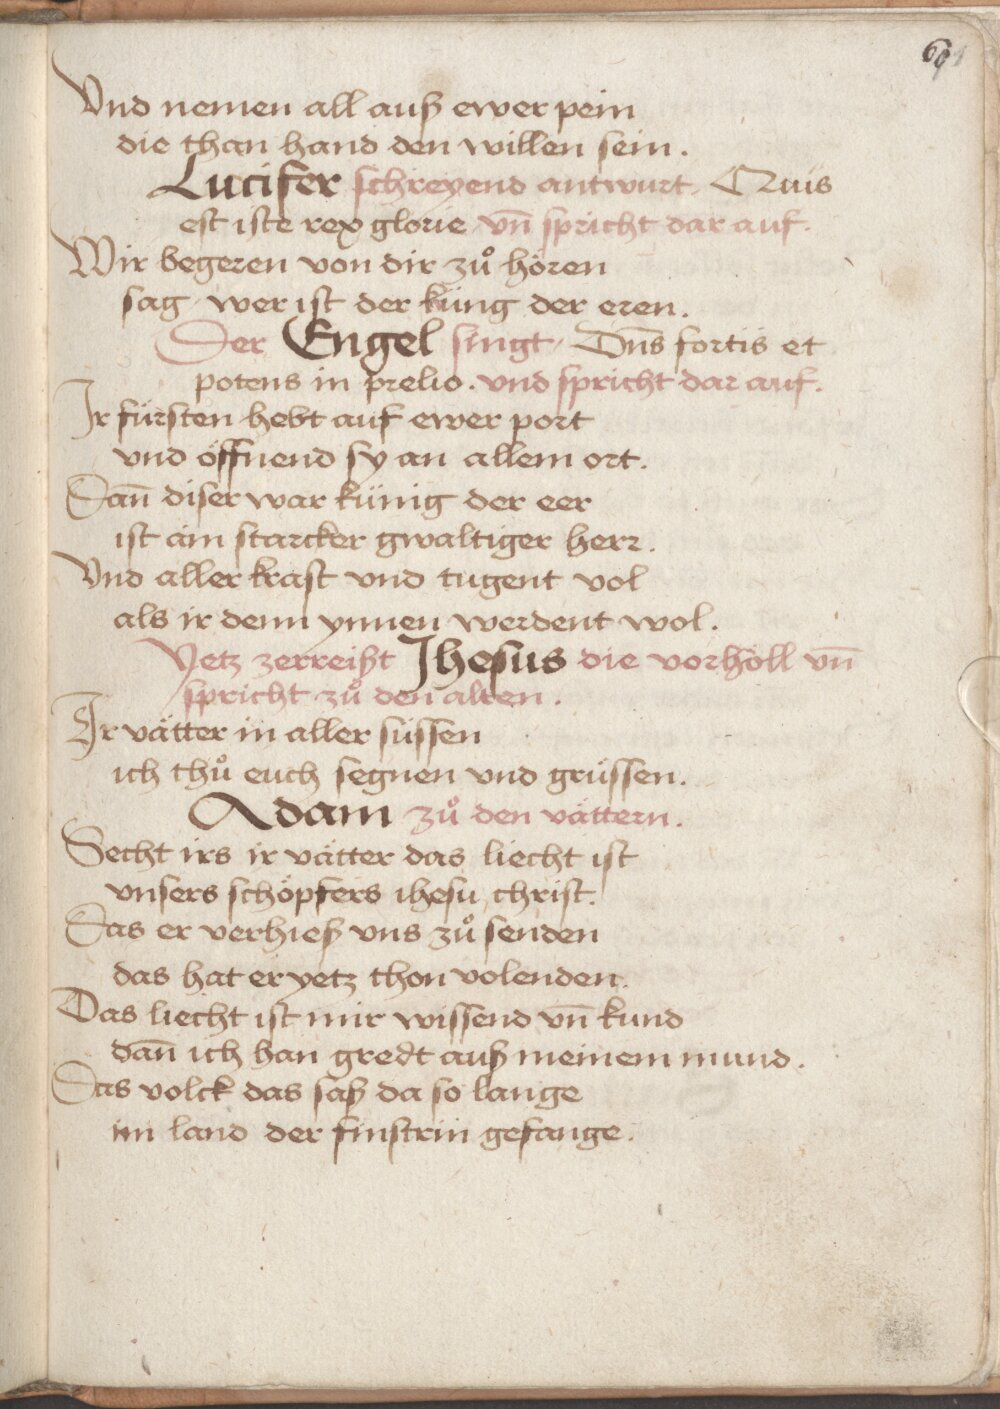 Vnd nemen all auß ewer pein
die than hand den willen sein.
Lucifer schreyend antwurt, Quis
est iste rex glorie vn̄ spricht dar auf.
Wir begeren von dir zů hören
sag wer ist der küng der eren.
Der Engel singt, Dn̄s fortis et
potens in prelio. vnd spricht dar auf.
Ir fürsten hebt auf ewer port
vnd öffnend sy an allem ort.
Dan̄ diser war künig der eer
ist äin starcker gwaltiger herr.
Vnd aller kraft vnd tugent vol
als ir denn ynnen werdent wol.
Yetz zerreißt Jhesus die vorhöll vn̄
spricht zů den alten.
Ir vätter in aller süssen
ich thů euch segnen vnd grüssen.
Adam zů den vättern.
Secht irs ir vätter das liecht ist
vnsers schöpfers ihesu christ.
Das er verhieß vns zů senden
das hat er yetz thon volenden.
Das liecht ist mir wissend vn̄ kund
dan̄ ich han gredt auß meinem mund.
Das volck das saß da so lange
im land der finstrin gefange.